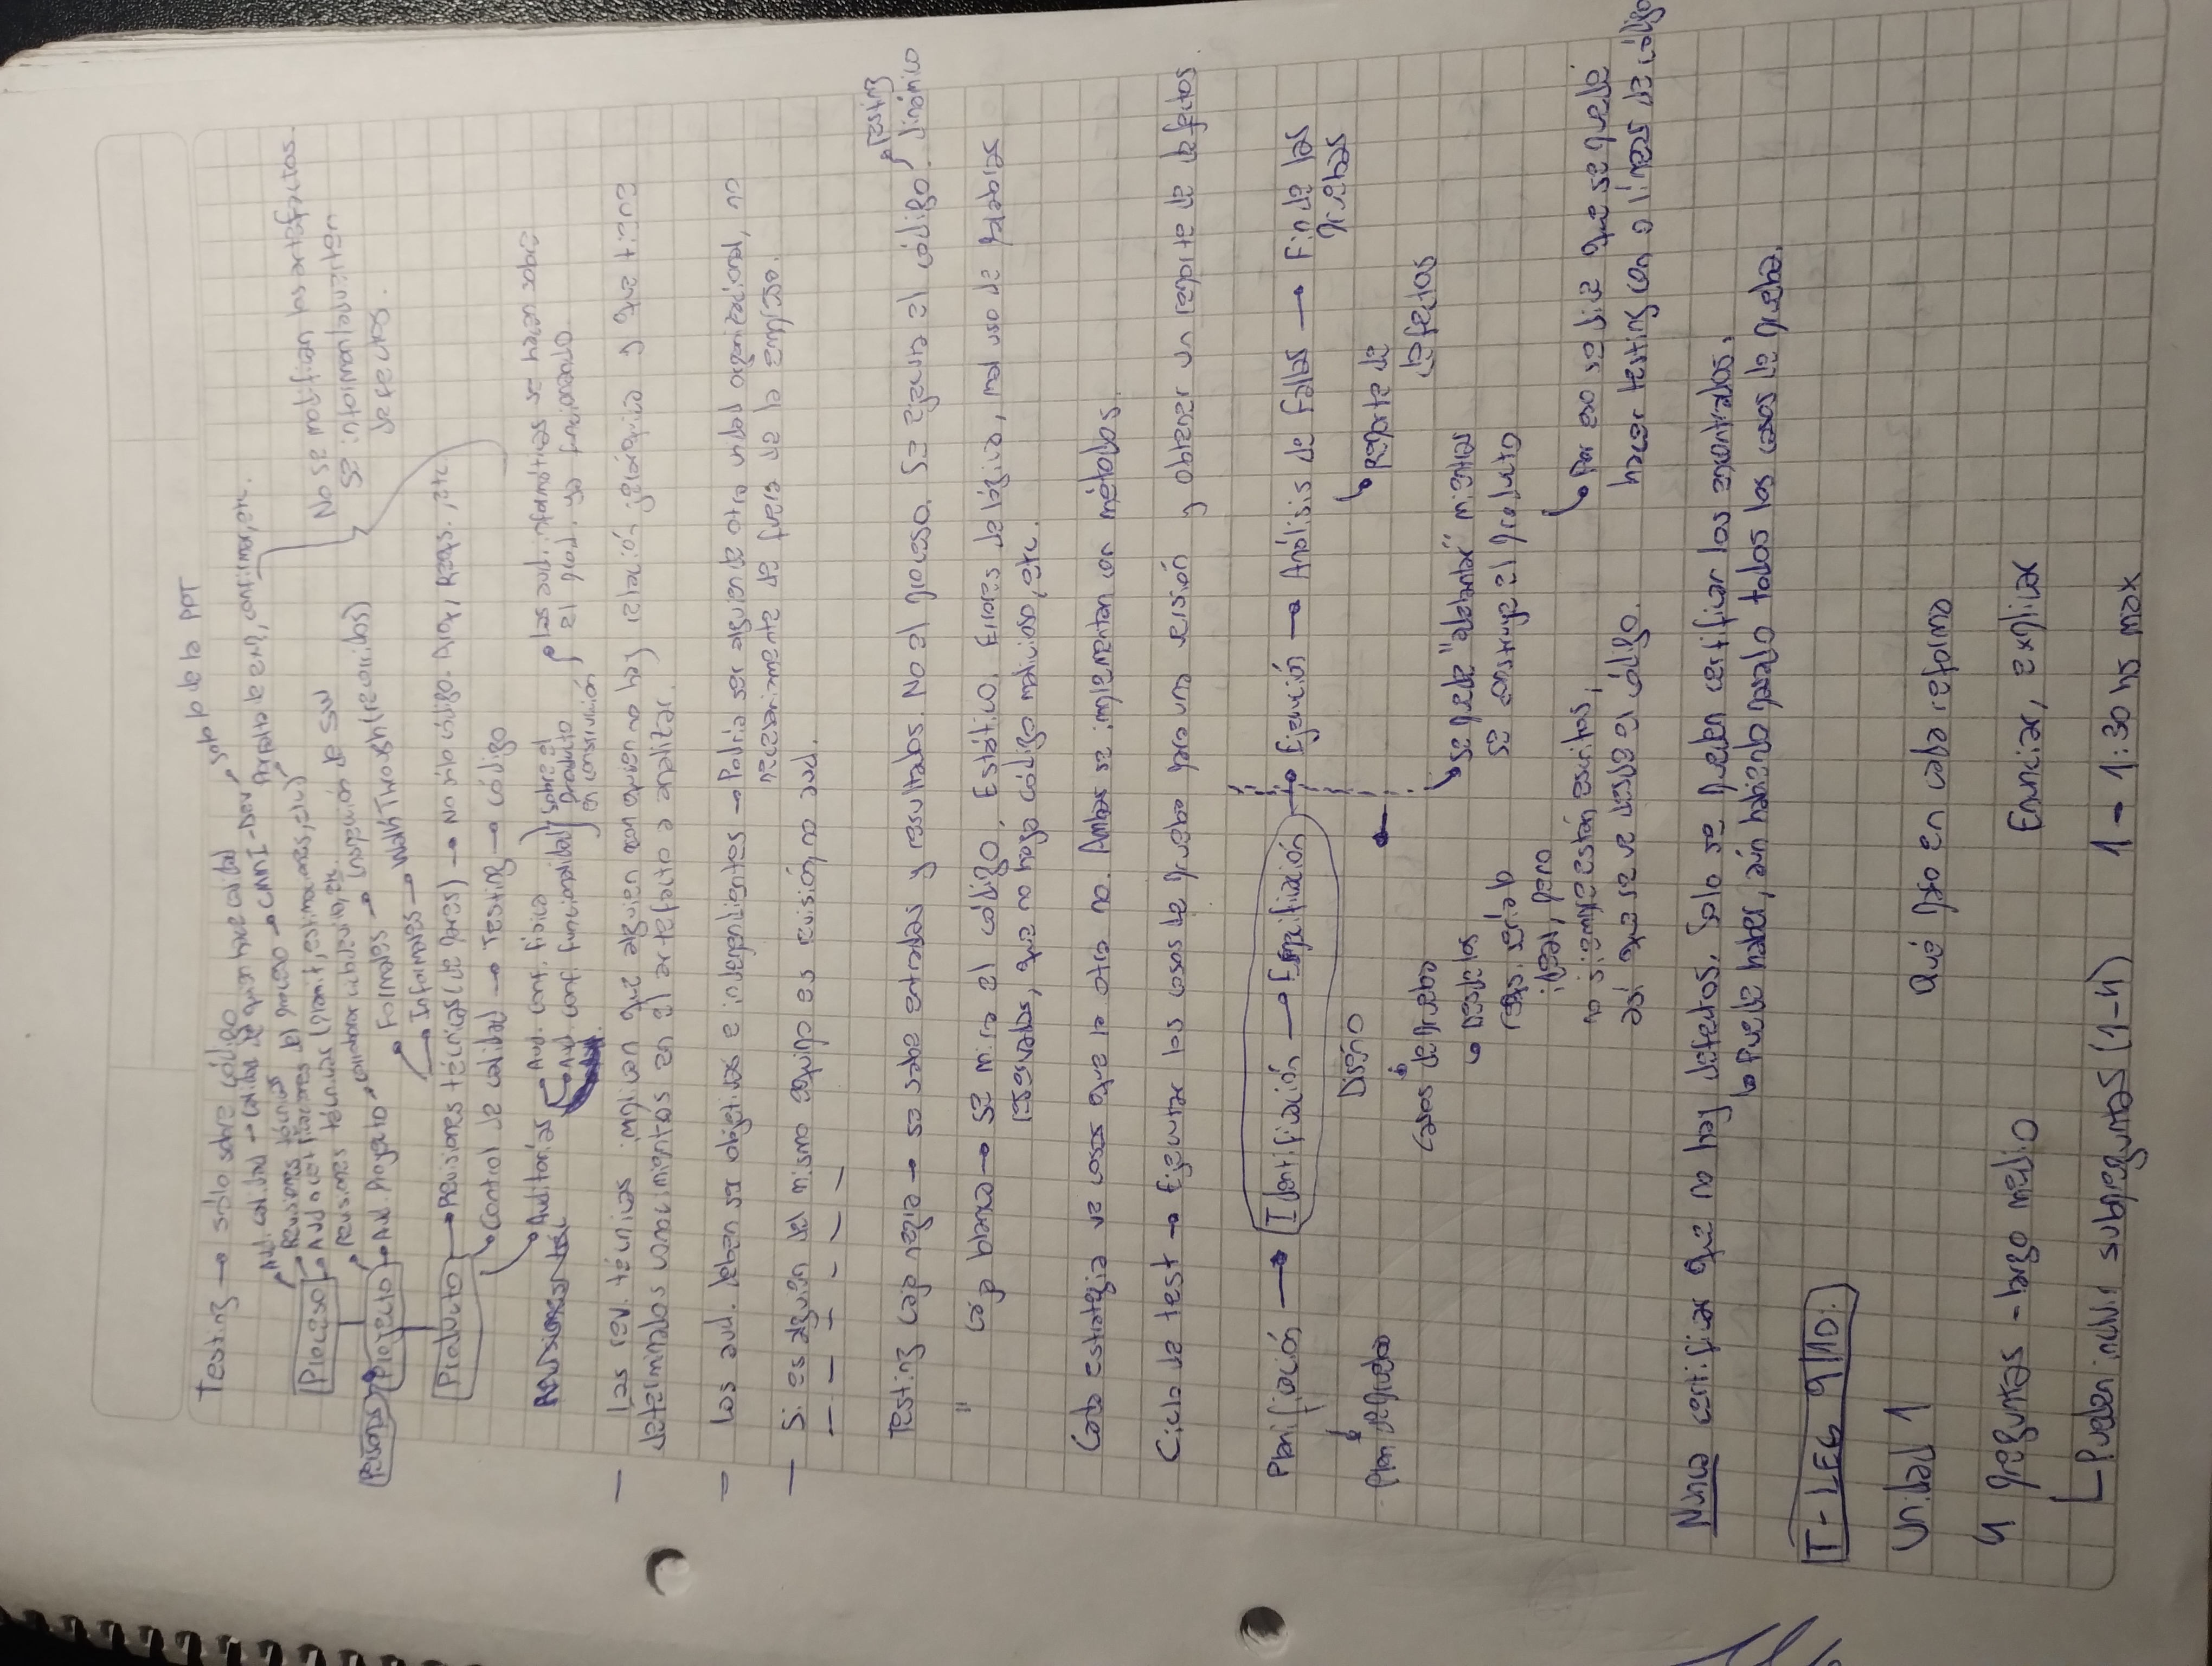 Testing → sólo sobre código
Aud. calidad → calidad de quien hace calidad
Revisiones técnicas al proceso → CMMI-Dev → solo lo de la PPT
Proceso → Aud o certificaciones
Revisiones técnicas (planif, estimaciones, etc) → Por falta de exp, confirmar, etc.
No se modifican los artefactos.
Se informan/advierten
defectos.
Personas Proyecto → Aud. Proyecto → colaborar, etc.
Formales → Inspección de SW
Informales → WalkThrough (recorridos)
Producto → Revisiones técnicas (de pares) → No sólo código. Arq, Reqs., etc
Control de calidad → Testing → código
Auditorías
Aud. conf. física
Aud. conf. funcionalidad
sobre el
producto
en construcción
Las aud. informáticas se hacen sobre
el prod. ya funcionando
— Las rev. técnicas implican que alguien con quien no hay relación jerárquica y que tiene
determinados conocimientos en el artefacto a analizar.
— Las aud. deben ser objetivas e independientes → Podría ser alguien de otra unidad organizacional, no
necesariamente de fuera de la empresa.
— Si es alguien del mismo equipo es revisión, no aud.
— — — — — —
Testing caja negra → se sabe entradas y resultados. No el proceso. Se ejecuta el código. → Testing
dinámico
" caja blanca → Se mira el código. Estático. Errores de lógica, mal uso de palabras
reservadas, que no haya código malicioso, etc.
Cada estrategia ve cosas que la otra no. Ambas se implementan con métodos.
Ciclo de test → Ejecutar los casos de prueba para una versión y obtener un reporte de defectos.
Planificación → Identificación → Especificación → Ejecución → Análisis de Fallas → Fin de las
pruebas
Plan de prueba
Diseño
Casos de prueba
↳ Desde los
reqs. sería lo
ideal, pero
no siempre están escritos,
así que se ve desde el código.
↳ Reporte de
defectos
↳ Se puede "adelantar" mientras
se construye el producto
↳ Por eso se dice que se puede
hacer testing con 0 líneas de código
Nunca certificar que no hay defectos. Solo se pueden certificar los encontrados.
↳ Puede haber, aún habiendo pasado todos los casos de prueba.
T- LEG 9/10:
Unidad 1
Qué pasó en cada reforma
4 preguntas - largo medio
Enunciar, explicar
Pueden incluir subpreguntas (1-4)
1 - 1:30 hs max